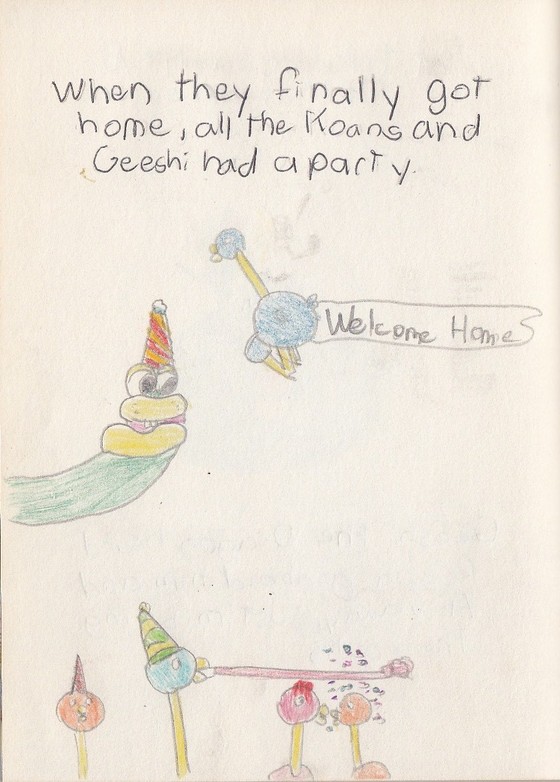 When they finally got
home, all the Koans and
Geeshi had a party.
Welcome Home